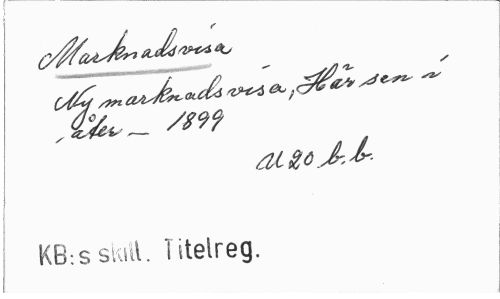 Marknadsvisa
Ny marknadsvisa, Här sen i
åter — 1899
U 20 b.b.
KB:s skill. Titelreg.